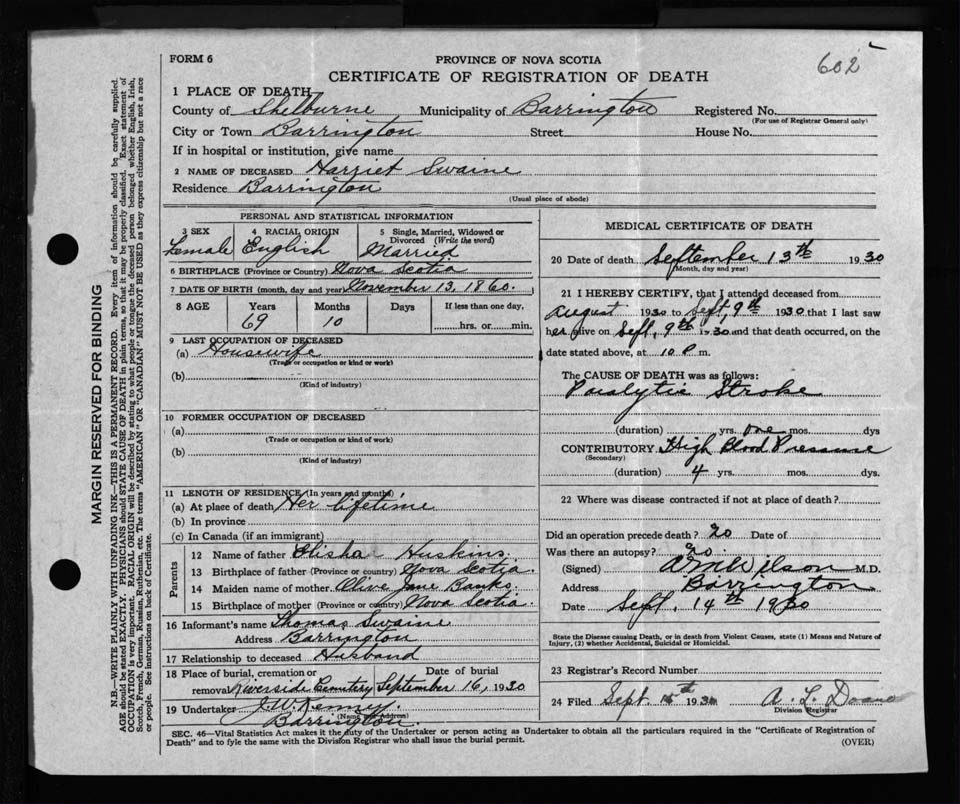 602
FORM 6
PROVINCE OF NOVA SCOTIA
CERTIFICATE OF REGISTRATION OF DEATH
1 PLACE OF DEATH
County of Shelburne Municipality of Barrington Registered No.
(For use of Registrar General only)
City or Town Barrington Street House No.
If in hospital or institution, give name
2 NAME OF DECEASED Harriet Swaine
Residence Barrington
(Usual place of abode)
PERSONAL AND STATISTICAL INFORMATION
3 SEX 4 RACIAL ORIGIN 5 Single, Married, Widowed or Divorced (Write the word)
Female English Married
6 BIRTHPLACE (Province or Country) Nova Scotia
7 DATE OF BIRTH (month, day and year) November 13, 1860.
8 AGE Years Months Days If less than one day,
69 10 hrs. or min.
9 LAST OCCUPATION OF DECEASED
(a) Housewife
(Trade or occupation or kind or work)
(b)
(Kind of industry)
10 FORMER OCCUPATION OF DECEASED
(a)
(Trade or occupation or kind of work)
(b)
(Kind of industry)
11 LENGTH OF RESIDENCE (In years and months)
(a) At place of death Her lifetime
(b) In province
(c) In Canada (if an immigrant)
Parents
12 Name of father Elisha Huskins.
13 Birthplace of father (Province or country) Nova Scotia.
14 Maiden name of mother Olive Jane Banks.
15 Birthplace of mother (Province or country) Nova Scotia.
16 Informant's name Thomas Swaine
Address Barrington
17 Relationship to deceased Husband
18 Place of burial, cremation or removal Riverside Cemetery Date of burial September 16, 1930
19 Undertaker J. W. Kenney.
(Name and Address)
Barrington.
MEDICAL CERTIFICATE OF DEATH
20 Date of death September 13th 1930
(Month, day and year)
21 I HEREBY CERTIFY, that I attended deceased from
August 1930 to Sept, 9th 1930 that I last saw
her alive on Sept, 9th 1930 and that death occurred, on the
date stated above, at 10 P m.
The CAUSE OF DEATH was as follows:
Paralytic Stroke
(duration) yrs. one mos. dys
CONTRIBUTORY High Blood Pressure
(Secondary)
(duration) 4 yrs. mos. dys.
22 Where was disease contracted if not at place of death?
Did an operation precede death? no Date of
Was there an autopsy? no.
(Signed) Wilson M.D.
Address Barrington
Date Sept, 14th 1930
State the Disease causing Death, or in death from Violent Causes, state (1) Means and Nature of
Injury, (2) whether Accidental, Suicidal or Homicidal.
23 Registrar's Record Number
24 Filed Sept. 193 A. L. Doane
Division Registrar
SEC. 46—Vital Statistics Act makes it the duty of the Undertaker or person acting as Undertaker to obtain all the particulars required in the "Certificate of Registration of
Death" and to fyle the same with the Division Registrar who shall issue the burial permit.
(OVER)
MARGIN RESERVED FOR BINDING
N.B.—WRITE PLAINLY WITH UNFADING INK—THIS IS A PERMANENT RECORD. Every item of information should be carefully supplied.
AGE should be stated EXACTLY. PHYSICIANS should STATE CAUSE OF DEATH in plain terms, so that it may be properly classified. Exact statement of
OCCUPATION is very important. RACIAL ORIGIN will be described by stating to what people or tongue the deceased person belonged whether English, Irish,
Scotch, French, German, Russian, Ruthenian, etc. The terms "AMERICAN" OR "CANADIAN" MUST NOT BE USED as they express citizenship but not a race
or people. See instructions on back of Certificate.